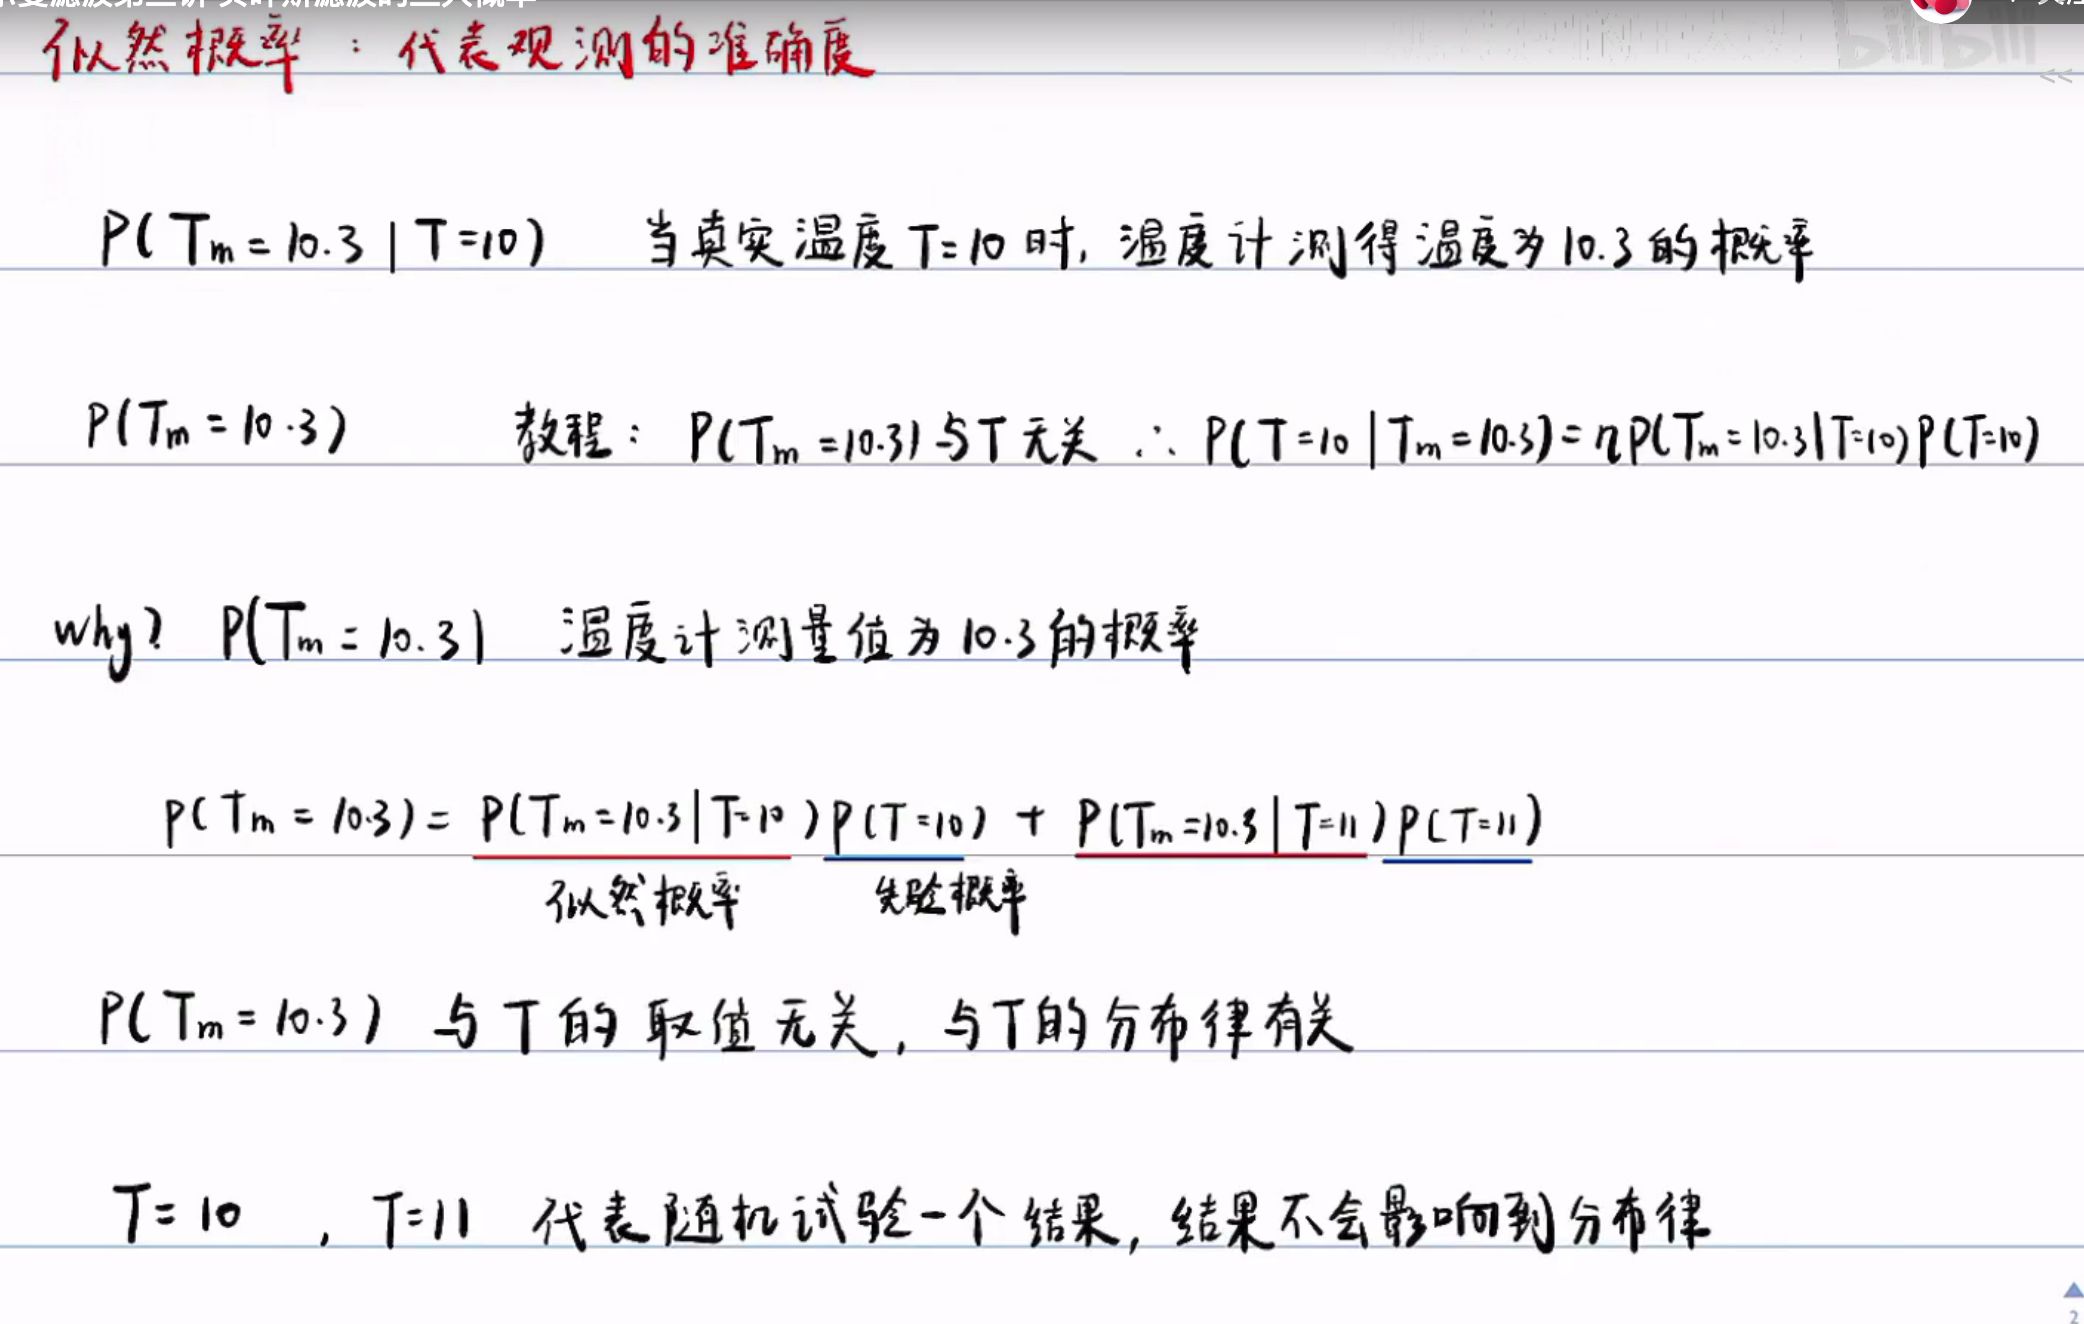 贝叶斯滤波的三大概率
bilibili
似然概率：代表观测的准确度
<<
P(Tm=10.3|T=10) 当真实温度T=10时，温度计测得温度为10.3的概率
P(Tm=10.3) 教程：P(Tm=10.3)与T无关 ∴ P(T=10|Tm=10.3)=ηP(Tm=10.3|T=10)P(T=10)
why? P(Tm=10.3) 温度计测量值为10.3的概率
P(Tm=10.3)=P(Tm=10.3|T=10)P(T=10)+P(Tm=10.3|T=11)P(T=11)
似然概率 先验概率
P(Tm=10.3) 与T的取值无关，与T的分布律有关
T=10，T=11 代表随机试验一个结果，结果不会影响到分布律
2